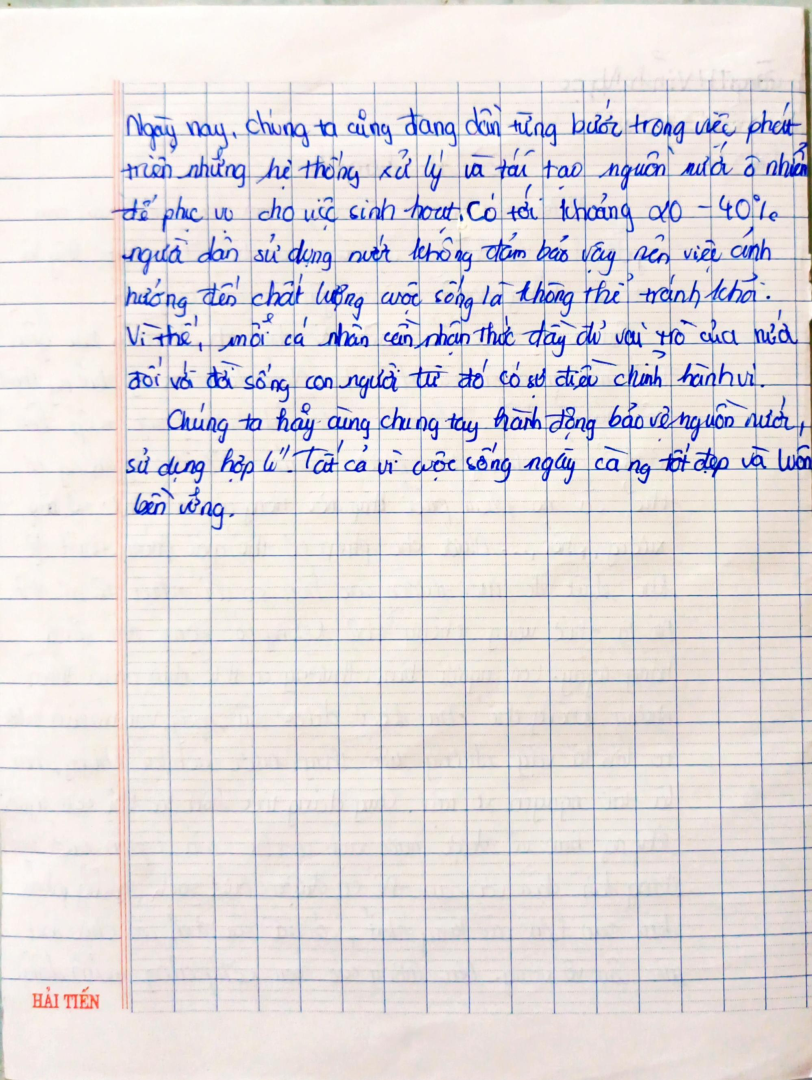 Ngày nay, chúng ta cũng đang dần từng bước trong việc phát
triển những hệ thống xử lý và tái tạo nguồn nước ô nhiễm
để phục vụ cho việc sinh hoạt. Có tới khoảng 20 - 40%
người dân sử dụng nước không đảm bảo vậy nên việc ảnh
hưởng đến chất lượng cuộc sống là không thể tránh khỏi.
Vì thế, mỗi cá nhân cần nhận thức đầy đủ vai trò của nước
đối với đời sống con người từ đó có sự điều chỉnh hành vi.
Chúng ta hãy cùng chung tay hành động bảo vệ nguồn nước,
sử dụng hợp lí. Tất cả vì cuộc sống ngày càng tốt đẹp và luôn
bền vững.
HẢI TIẾN